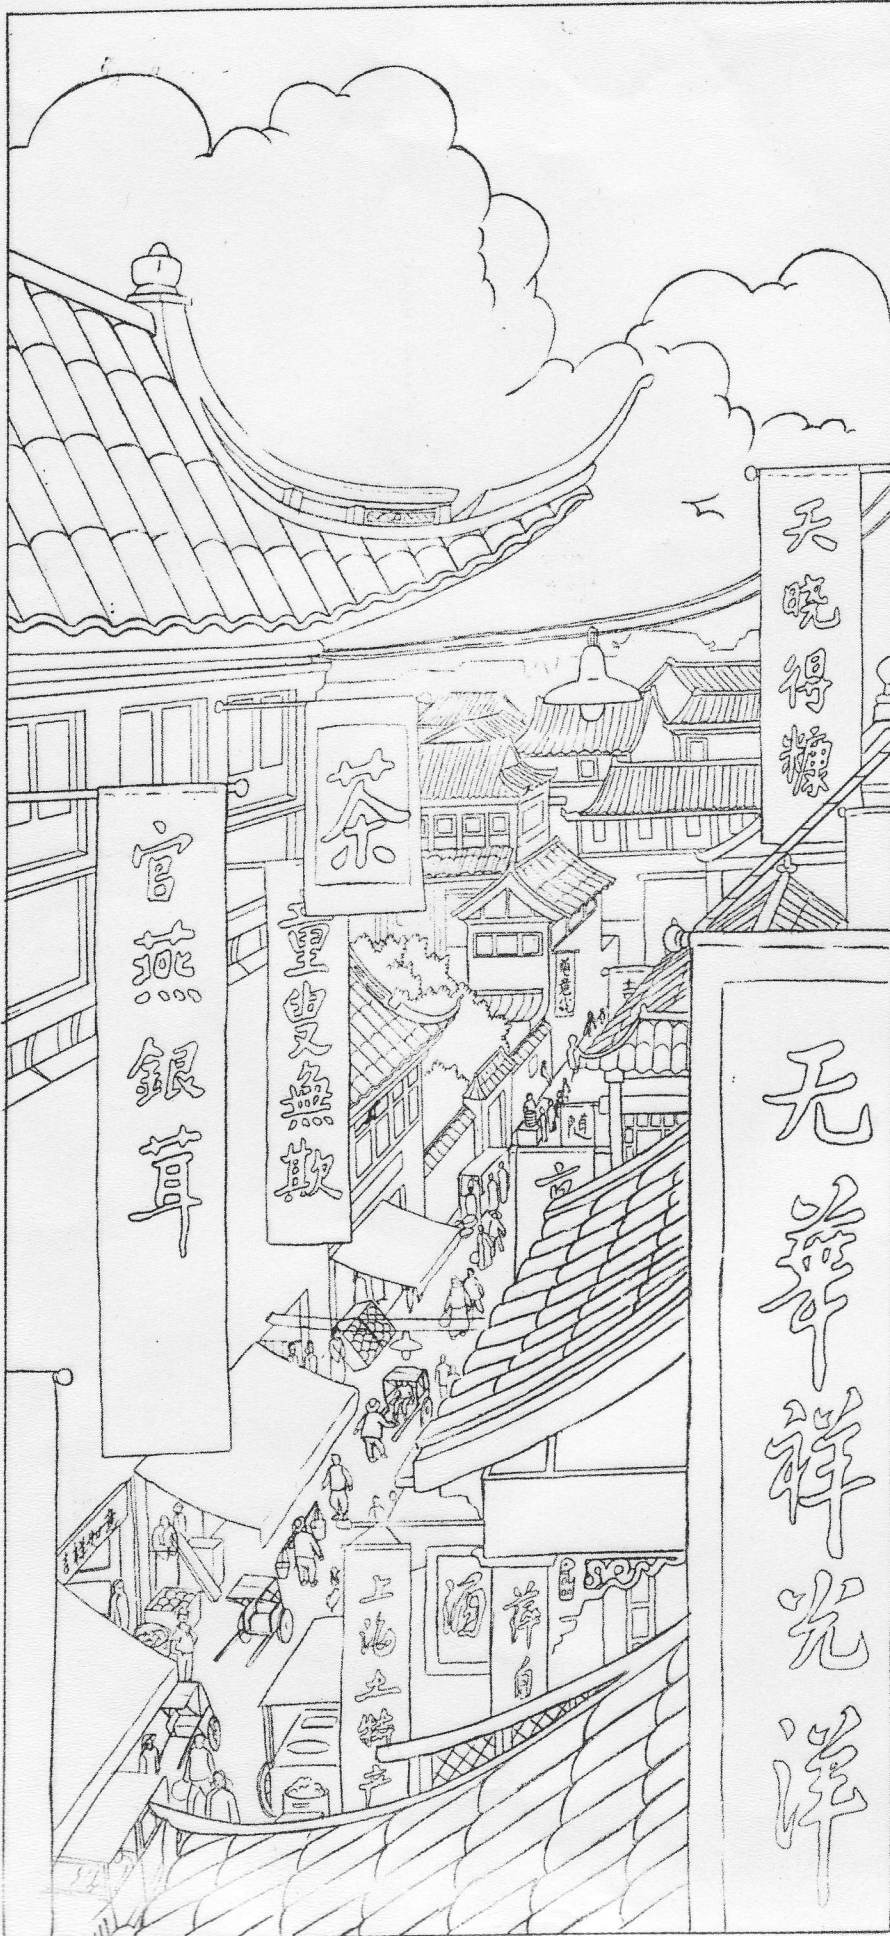 天晓得糠
茶
官燕銀茸
童叟無欺
无華祥光洋
上海土特产
酒